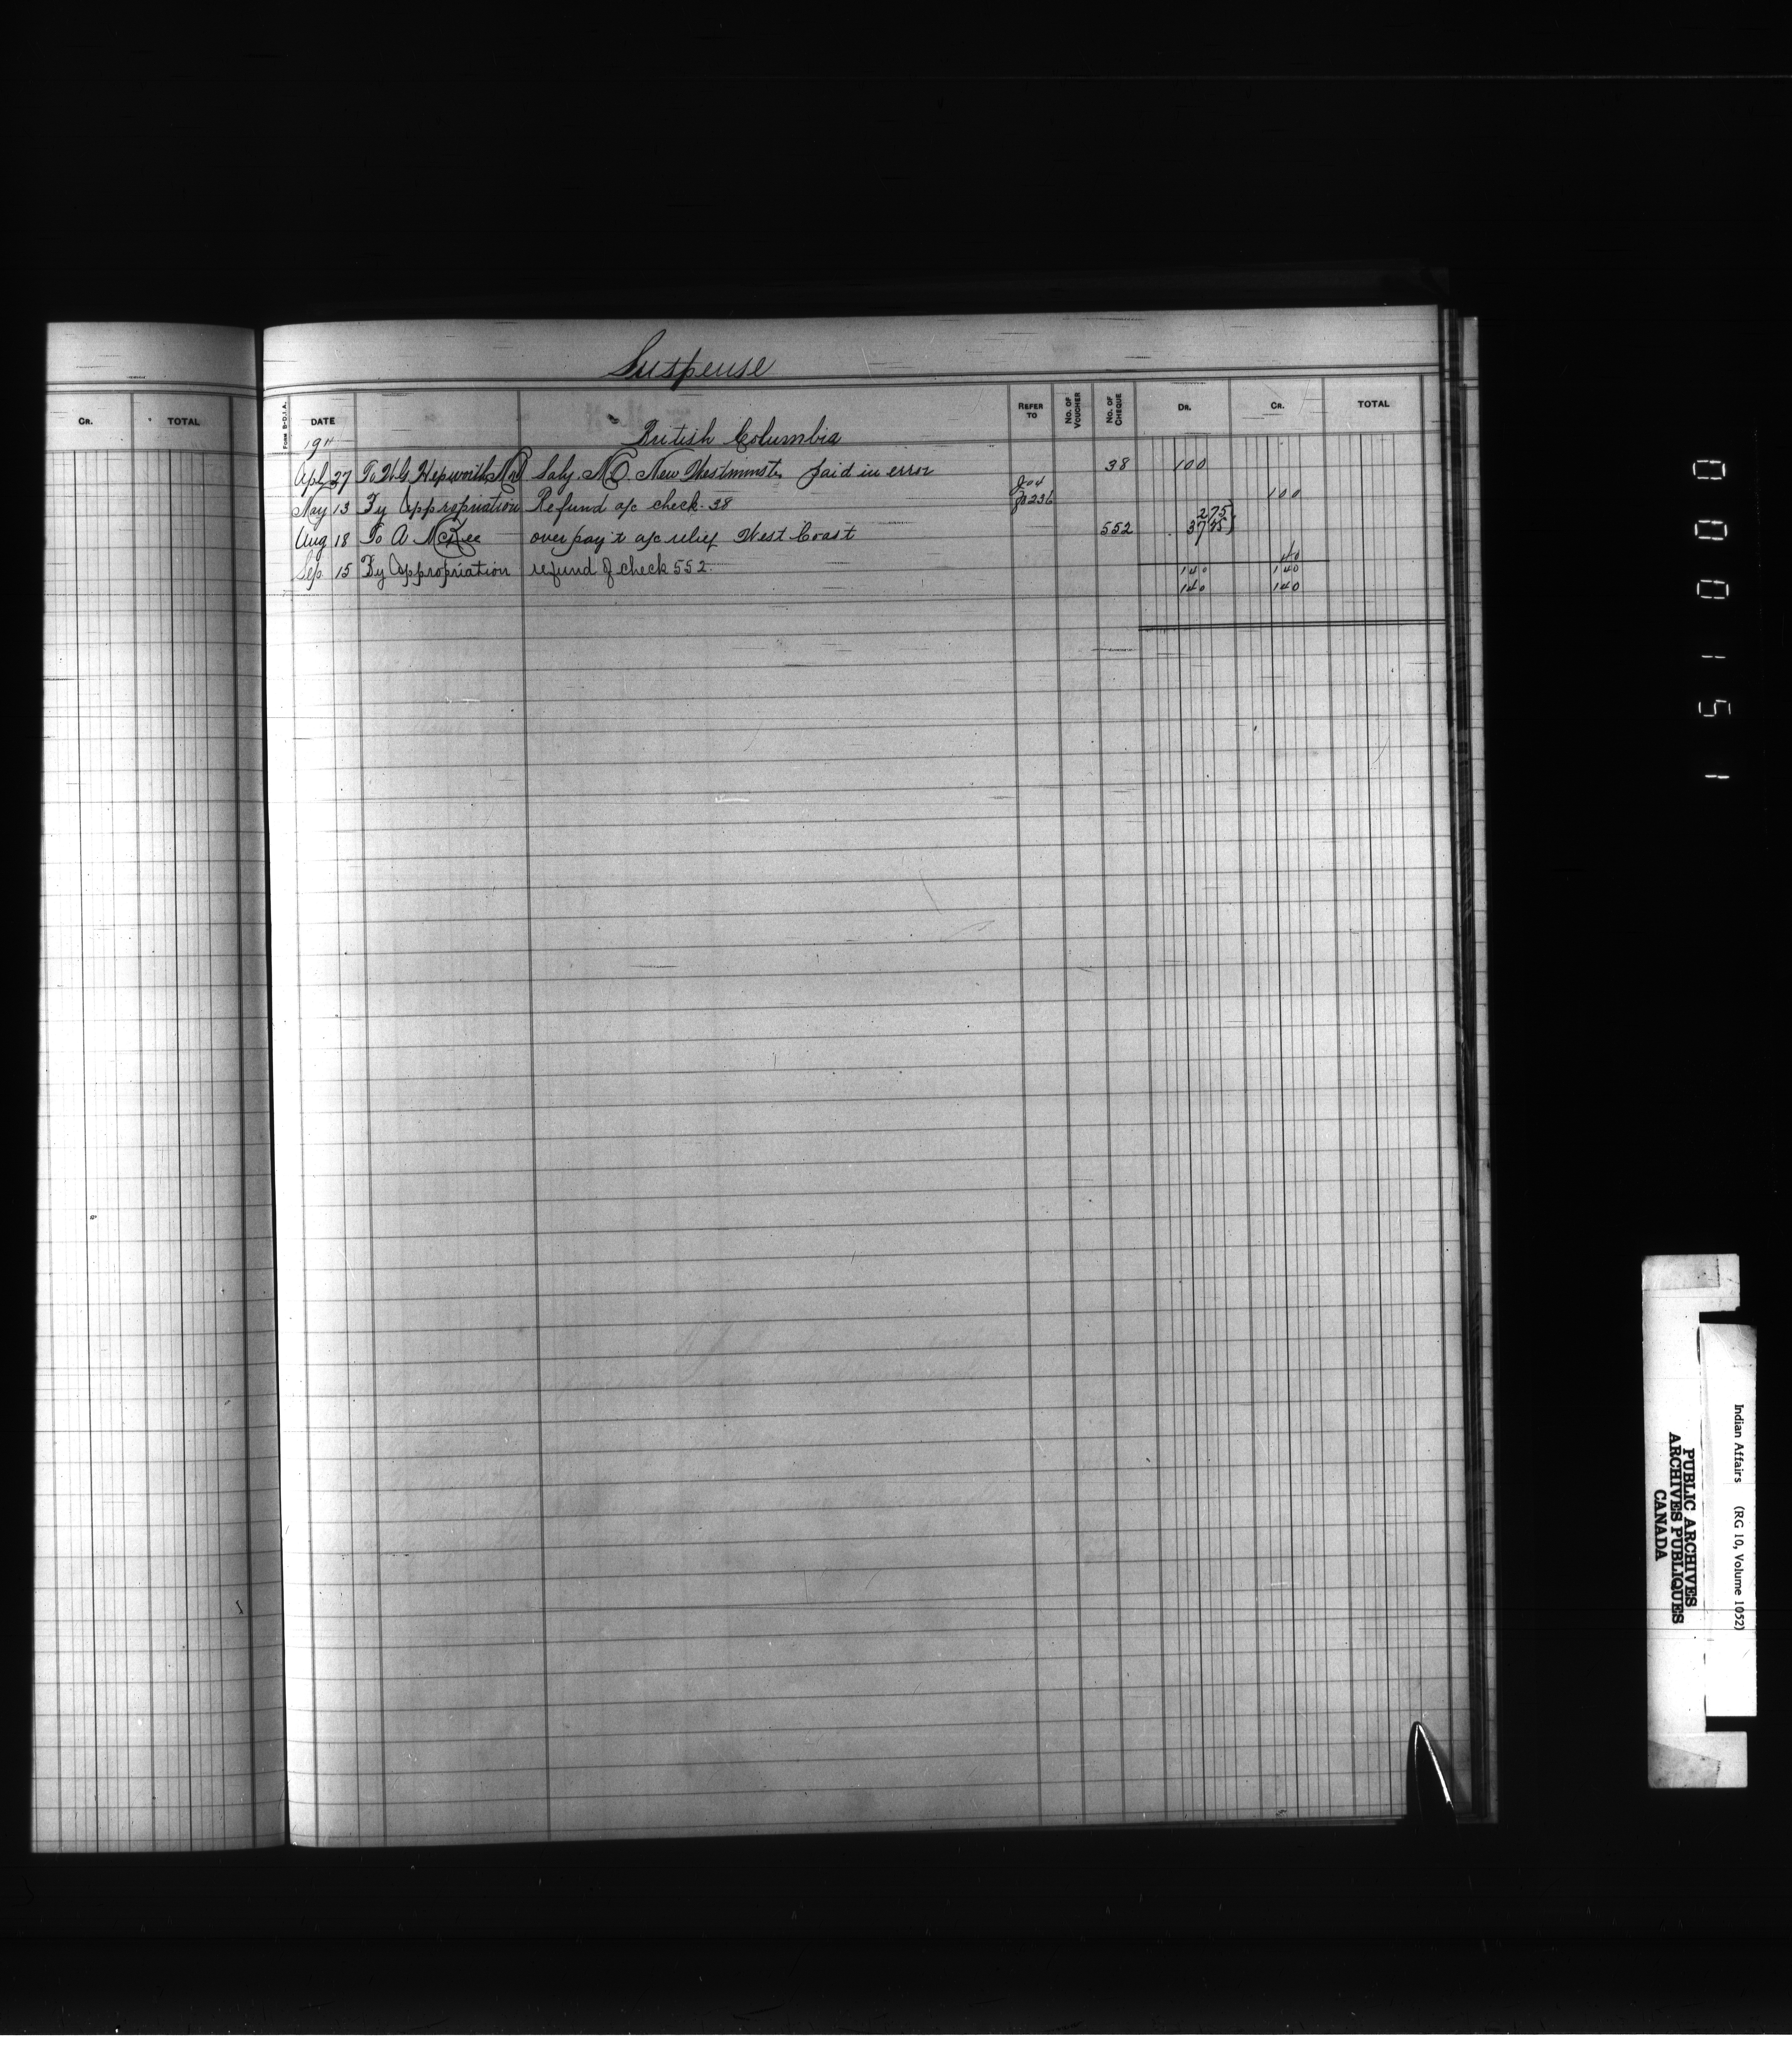 Suspense
CR. TOTAL
FORM B-D.I.A. DATE REFER TO No. OF VOUCHER No. OF CHEQUE DR. CR. TOTAL
1911 British Columbia
Apl 27 To H.G. Hepworth Md Saly. M.O. New Westminster paid in error 38 100
J 04
May 13 By Appropriation Refund a/c check 38 Jo 236 100
2 75
Aug 18 To A McKee over pay't a/c relief West Coast 552 37 25
40
Sep. 15 By Appropriation refund of check 552. 140 140
140 140
000151
Indian Affairs (RG 10, Volume 1052)
PUBLIC ARCHIVES
ARCHIVES PUBLIQUES
CANADA